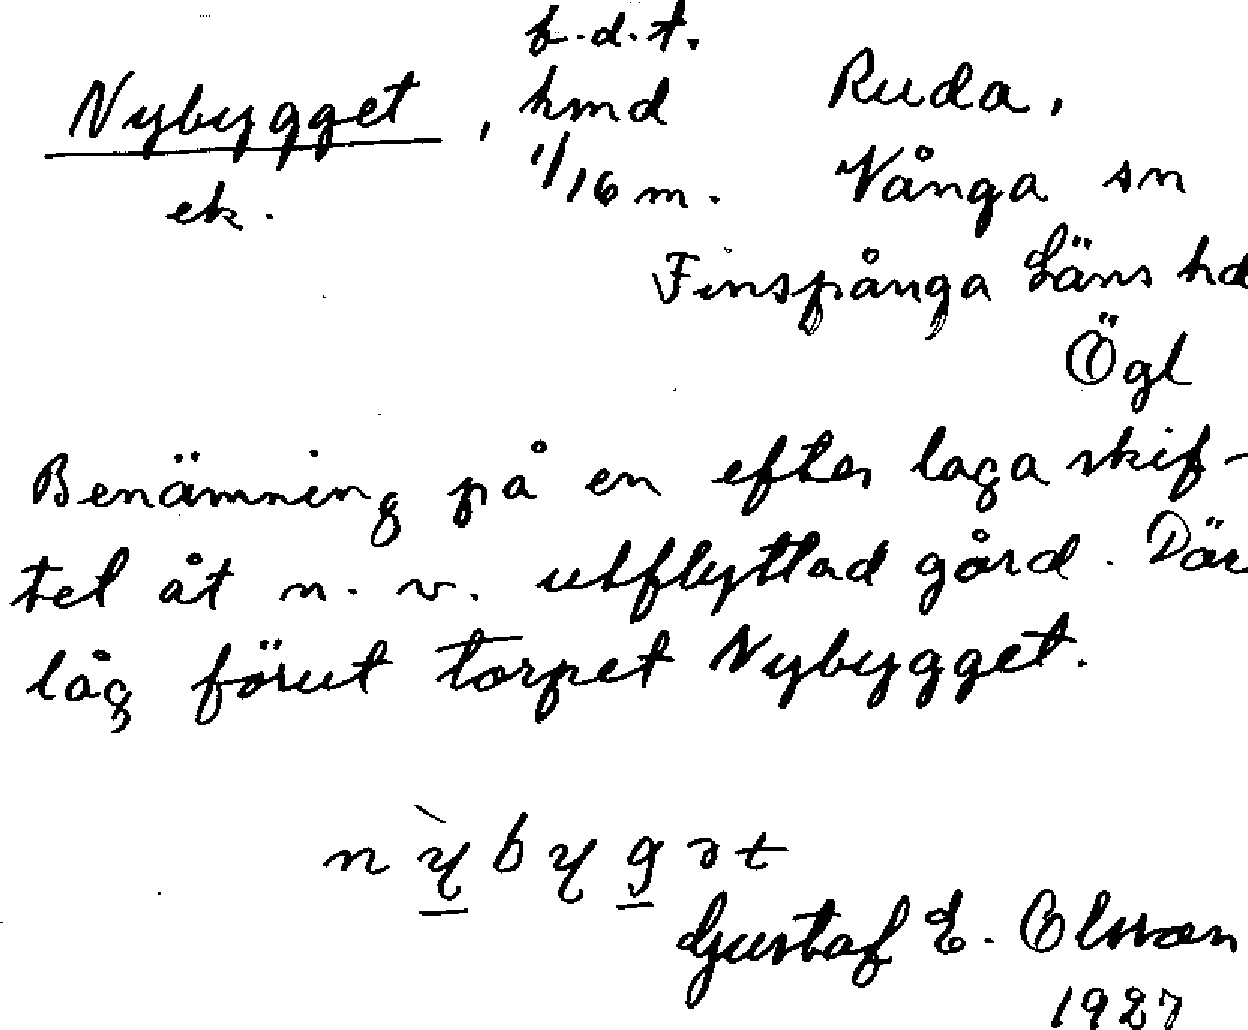 f.d.t.
Nybygget, hmd Ruda,
ek. 1/16 m. Vånga sn
Finspånga Läns hd
Ögl
Benämning på en efter laga skif-
tet åt n. v. utflyttad gård. Där
låg förut torpet Nybygget.
nỳbygət
Gustaf E. Olsson
1927